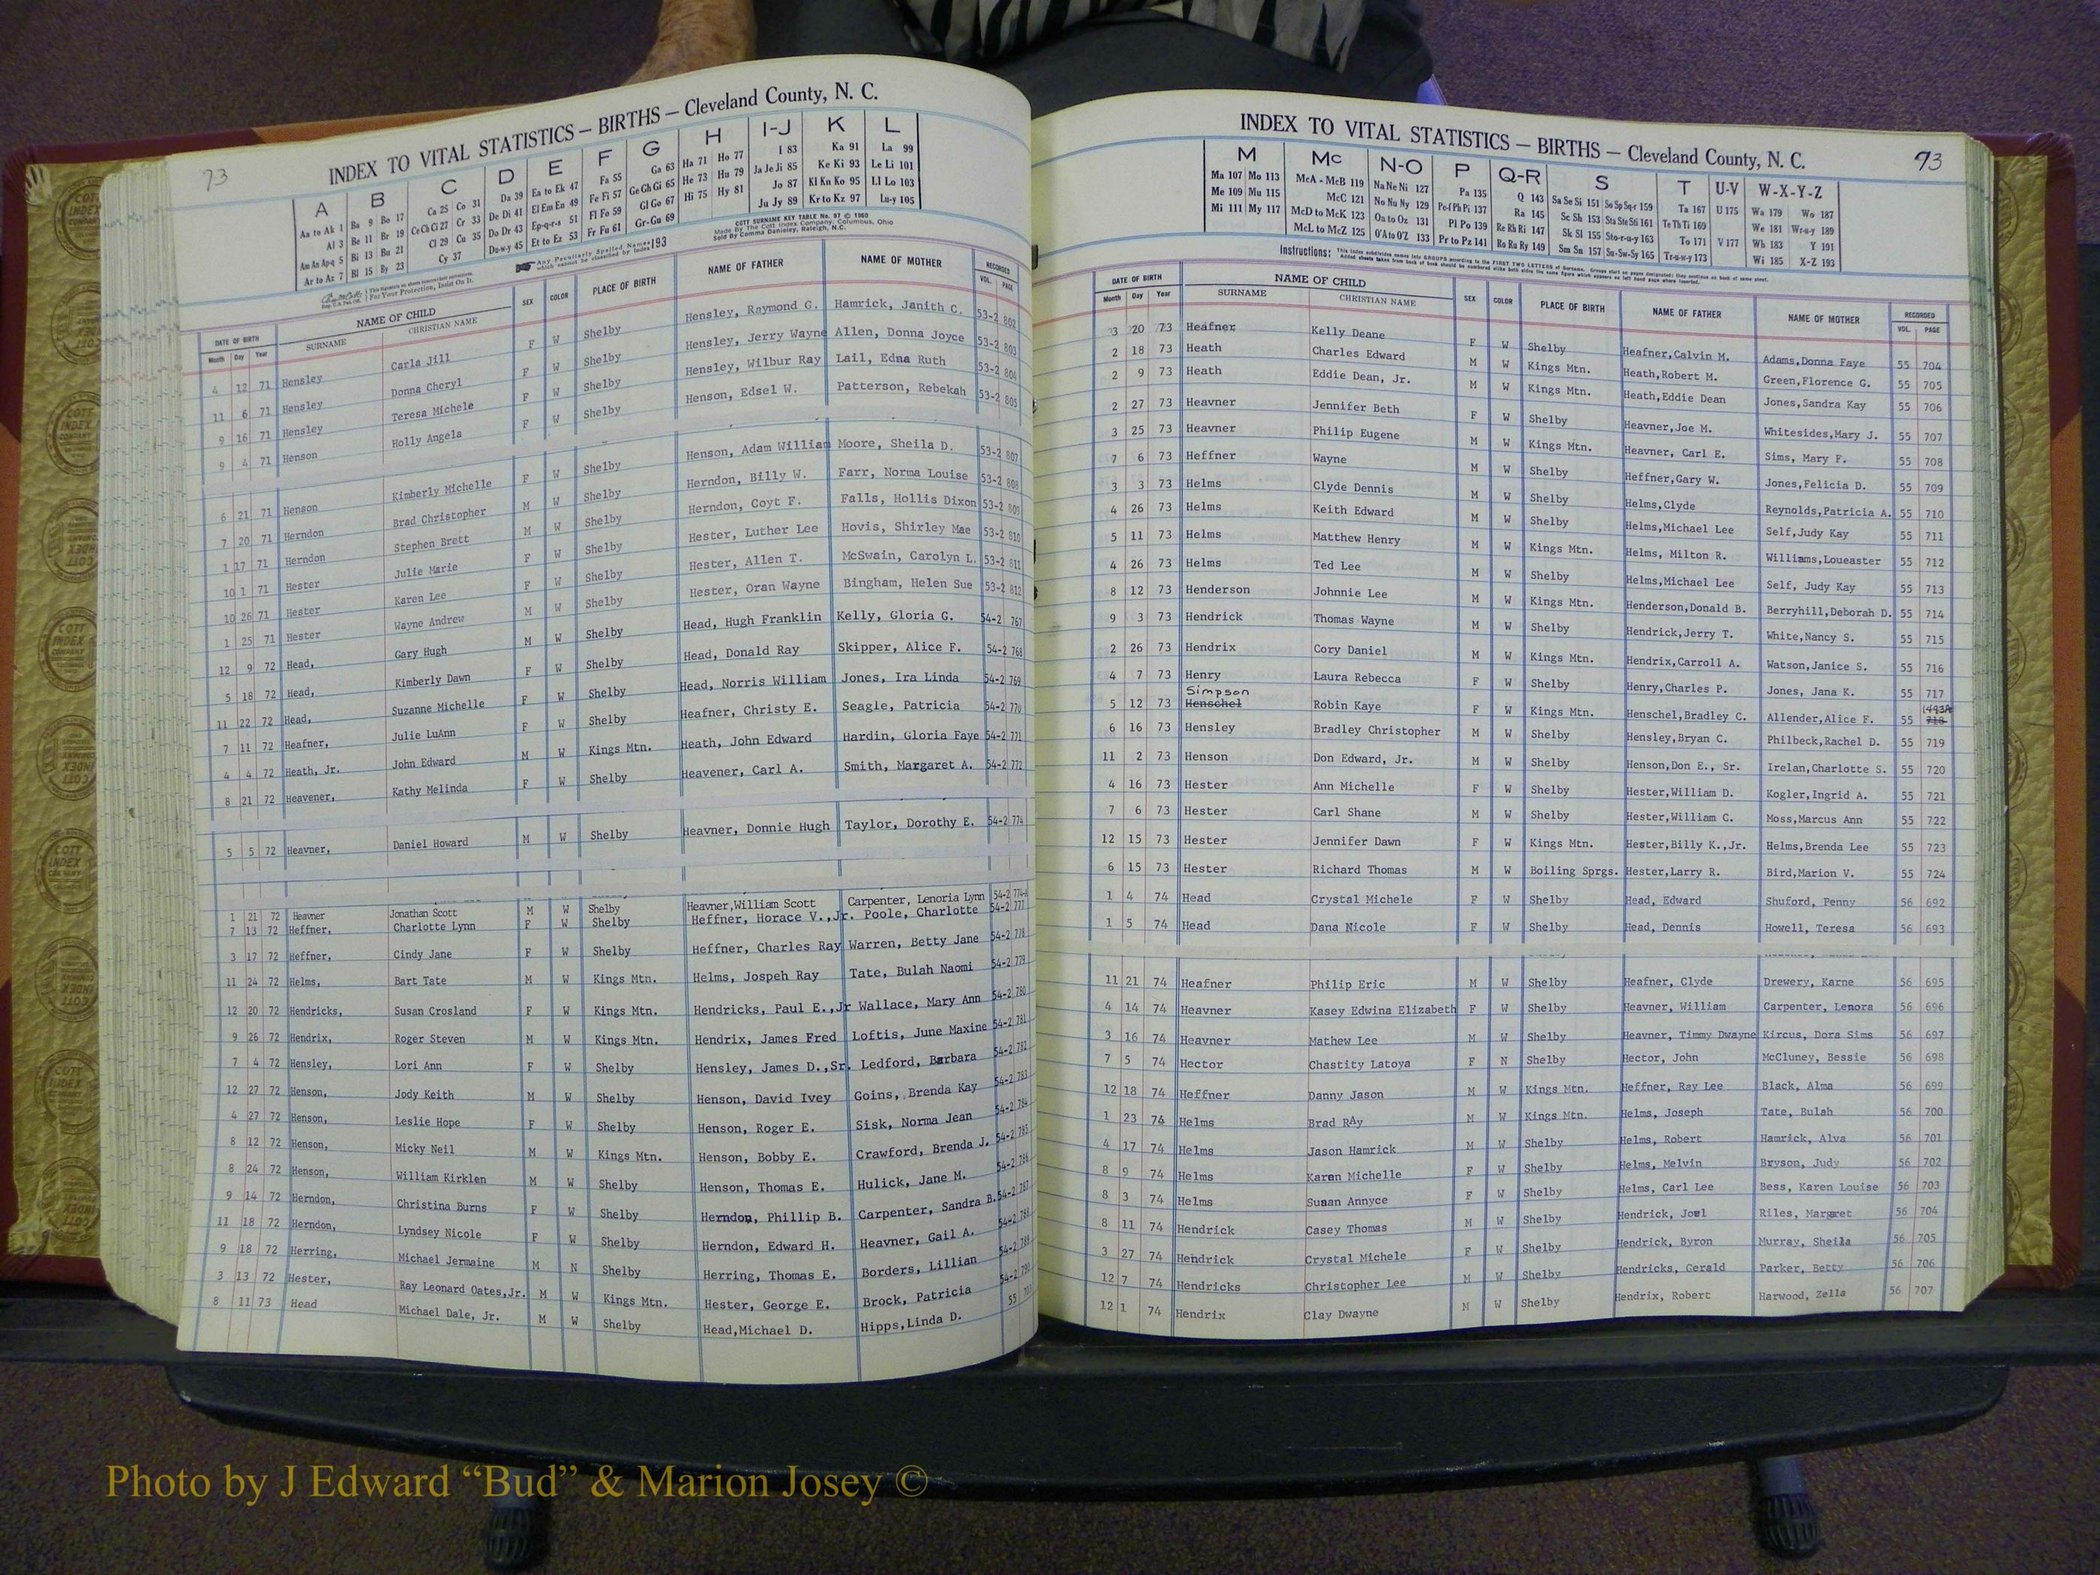 73
INDEX TO VITAL STATISTICS — BIRTHS — Cleveland County, N. C.
A B C D E F G H I-J K L
Aa to Ak 1 Ba 9 Bo 17 Ca 25 Co 31 Da 39 Ea to Ek 47 Fa 55 Ga 63 Ha 71 Ho 77 I 83 Ka 91 La 99
Al 3 Be 11 Br 19 Ce Ch Ci 27 Cr 33 De Di 41 El Em En 49 Fe Fi 57 Ge Gh Gi 65 He 73 Hu 79 Ja Je Ji 85 Ke Ki 93 Le Li 101
Am An Ap-q 5 Bi 13 Bu 21 Cl 29 Cu 35 Do Dr 43 Ep-q-r-s 51 Fl Fo 59 Gl Go 67 Hi 75 Hy 81 Jo 87 Kl Kn Ko 95 Ll Lo 103
Ar to Az 7 Bl 15 By 23 Cy 37 Du-w-y 45 Et to Ez 53 Fr Fu 61 Gr-Gu 69 Ju Jy 89 Kr to Kz 97 Lu-y 105
COTT SURNAME KEY TABLE No. 97 © 1960
Made By The Cott Index Company, Columbus, Ohio
Sold By Comma Danieley, Raleigh, N.C.
Any Peculiarly Spelled Names 193
which cannot be classified by Index
For Your Protection, Insist On It.
DATE OF BIRTH NAME OF CHILD SEX COLOR PLACE OF BIRTH NAME OF FATHER NAME OF MOTHER RECORDED
Month Day Year SURNAME CHRISTIAN NAME VOL. PAGE
4 12 71 Hensley Carla Jill F W Shelby Hensley, Raymond G. Hamrick, Janith C. 53-2 802
11 6 71 Hensley Donna Cheryl F W Shelby Hensley, Jerry Wayne Allen, Donna Joyce 53-2 803
9 16 71 Hensley Teresa Michele F W Shelby Hensley, Wilbur Ray Lail, Edna Ruth 53-2 804
9 4 71 Henson Holly Angela F W Shelby Henson, Edsel W. Patterson, Rebekah 53-2 805
6 21 71 Henson Kimberly Michelle F W Shelby Henson, Adam William Moore, Sheila D. 53-2 807
7 20 71 Herndon Brad Christopher M W Shelby Herndon, Billy W. Farr, Norma Louise 53-2 808
1 17 71 Herndon Stephen Brett M W Shelby Herndon, Coyt F. Falls, Hollis Dixon 53-2 809
10 1 71 Hester Julie Marie F W Shelby Hester, Luther Lee Hovis, Shirley Mae 53-2 810
10 26 71 Hester Karen Lee F W Shelby Hester, Allen T. McSwain, Carolyn L. 53-2 811
1 25 71 Hester Wayne Andrew M W Shelby Hester, Oran Wayne Bingham, Helen Sue 53-2 812
12 9 72 Head, Gary Hugh M W Shelby Head, Hugh Franklin Kelly, Gloria G. 54-2 767
5 18 72 Head, Kimberly Dawn F W Shelby Head, Donald Ray Skipper, Alice F. 54-2 768
11 22 72 Head, Suzanne Michelle F W Shelby Head, Norris William Jones, Ira Linda 54-2 769
7 11 72 Heafner, Julie LuAnn F W Shelby Heafner, Christy E. Seagle, Patricia 54-2 770
4 4 72 Heath, Jr. John Edward M W Kings Mtn. Heath, John Edward Hardin, Gloria Faye 54-2 771
8 21 72 Heavener, Kathy Melinda F W Shelby Heavener, Carl A. Smith, Margaret A. 54-2 772
5 5 72 Heavner, Daniel Howard M W Shelby Heavner, Donnie Hugh Taylor, Dorothy E. 54-2 774
1 21 72 Heavner Jonathan Scott M W Shelby Heavner,William Scott Carpenter, Lenoria Lynn 54-2 774-A
7 13 72 Heffner, Charlotte Lynn F W Shelby Heffner, Horace V.,Jr. Poole, Charlotte 54-2 777
3 17 72 Heffner, Cindy Jane F W Shelby Heffner, Charles Ray Warren, Betty Jane 54-2 778
11 24 72 Helms, Bart Tate M W Kings Mtn. Helms, Jospeh Ray Tate, Bulah Naomi 54-2 779
12 20 72 Hendricks, Susan Crosland F W Kings Mtn. Hendricks, Paul E.,Jr Wallace, Mary Ann 54-2 780
9 26 72 Hendrix, Roger Steven M W Kings Mtn. Hendrix, James Fred Loftis, June Maxine 54-2 781
7 4 72 Hensley, Lori Ann F W Shelby Hensley, James D.,Sr. Ledford, Barbara 54-2 782
12 27 72 Henson, Jody Keith M W Shelby Henson, David Ivey Goins, Brenda Kay 54-2 783
4 27 72 Henson, Leslie Hope F W Shelby Henson, Roger E. Sisk, Norma Jean 54-2 784
8 12 72 Henson, Micky Neil M W Kings Mtn. Henson, Bobby E. Crawford, Brenda J. 54-2 785
8 24 72 Henson, William Kirklen M W Shelby Henson, Thomas E. Hulick, Jane M. 54-2 786
9 14 72 Herndon, Christina Burns F W Shelby Herndon, Phillip B. Carpenter, Sandra B. 54-2 787
11 18 72 Herndon, Lyndsey Nicole F W Shelby Herndon, Edward H. Heavner, Gail A. 54-2 788
9 18 72 Herring, Michael Jermaine M N Shelby Herring, Thomas E. Borders, Lillian 54-2 789
3 13 72 Hester, Ray Leonard Oates,Jr. M W Kings Mtn. Hester, George E. Brock, Patricia 54-2 790
8 11 73 Head Michael Dale, Jr. M W Shelby Head,Michael D. Hipps,Linda D. 55 703
INDEX TO VITAL STATISTICS — BIRTHS — Cleveland County, N. C. 73
M Mc N-O P Q-R S T U-V W-X-Y-Z
Ma 107 Mo 113 McA - McB 119 Na Ne Ni 127 Pa 135 Q 143 Sa Se Si 151 So Sp Sq-r 159 Ta 167 U 175 Wa 179 Wo 187
Me 109 Mu 115 McC 121 No Nu Ny 129 Pe-f Ph Pi 137 Ra 145 Sc Sh 153 Sta Ste Sti 161 Te Th Ti 169 We 181 Wr-u-y 189
Mi 111 My 117 McD to McK 123 Oa to Oz 131 Pl Po 139 Re Rh Ri 147 Sk Sl 155 Sto-r-u-y 163 To 171 V 177 Wh 183 Y 191
McL to McZ 125 O'A to O'Z 133 Pr to Pz 141 Ro Ru Ry 149 Sm Sn 157 Su-Sw-Sy 165 Tr-u-w-y 173 Wi 185 X-Z 193
Instructions: This index subdivides names into GROUPS according to the FIRST TWO LETTERS of Surname. Groups start on pages designated; they continue on back of same sheet.
Added sheets taken from back of book should be numbered alike both sides the same figure which appears on left hand page where inserted.
DATE OF BIRTH NAME OF CHILD SEX COLOR PLACE OF BIRTH NAME OF FATHER NAME OF MOTHER RECORDED
Month Day Year SURNAME CHRISTIAN NAME VOL. PAGE
3 20 73 Heafner Kelly Deane F W Shelby Heafner,Calvin M. Adams,Donna Faye 55 704
2 18 73 Heath Charles Edward M W Kings Mtn. Heath,Robert M. Green,Florence G. 55 705
2 9 73 Heath Eddie Dean, Jr. M W Kings Mtn. Heath,Eddie Dean Jones,Sandra Kay 55 706
2 27 73 Heavner Jennifer Beth F W Shelby Heavner,Joe M. Whitesides,Mary J. 55 707
3 25 73 Heavner Philip Eugene M W Kings Mtn. Heavner, Carl E. Sims, Mary F. 55 708
7 6 73 Heffner Wayne M W Shelby Heffner,Gary W. Jones,Felicia D. 55 709
3 3 73 Helms Clyde Dennis M W Shelby Helms,Clyde Reynolds,Patricia A. 55 710
4 26 73 Helms Keith Edward M W Shelby Helms,Michael Lee Self,Judy Kay 55 711
5 11 73 Helms Matthew Henry M W Kings Mtn. Helms, Milton R. Williams,Loueaster 55 712
4 26 73 Helms Ted Lee M W Shelby Helms,Michael Lee Self, Judy Kay 55 713
8 12 73 Henderson Johnnie Lee M W Kings Mtn. Henderson,Donald B. Berryhill,Deborah D. 55 714
9 3 73 Hendrick Thomas Wayne M W Shelby Hendrick,Jerry T. White,Nancy S. 55 715
2 26 73 Hendrix Cory Daniel M W Kings Mtn. Hendrix,Carroll A. Watson,Janice S. 55 716
4 7 73 Henry Laura Rebecca F W Shelby Henry,Charles P. Jones, Jana K. 55 717
Simpson 1493A
5 12 73 Henschel Robin Kaye F W Kings Mtn. Henschel,Bradley C. Allender,Alice F. 55 718
6 16 73 Hensley Bradley Christopher M W Shelby Hensley,Bryan C. Philbeck,Rachel D. 55 719
11 2 73 Henson Don Edward, Jr. M W Shelby Henson,Don E., Sr. Irelan,Charlotte S. 55 720
4 16 73 Hester Ann Michelle F W Shelby Hester,William D. Kogler,Ingrid A. 55 721
7 6 73 Hester Carl Shane M W Shelby Hester,William C. Moss,Marcus Ann 55 722
12 15 73 Hester Jennifer Dawn F W Kings Mtn. Hester,Billy K.,Jr. Helms,Brenda Lee 55 723
6 15 73 Hester Richard Thomas M W Boiling Sprgs. Hester,Larry R. Bird,Marion V. 55 724
1 4 74 Head Crystal Michele F W Shelby Head, Edward Shuford, Penny 56 692
1 5 74 Head Dana Nicole F W Shelby Head, Dennis Howell, Teresa 56 693
11 21 74 Heafner Philip Eric M W Shelby Heafner, Clyde Drewery, Karne 56 695
4 14 74 Heavner Kasey Edwina Elizabeth F W Shelby Heavner, William Carpenter, Lenora 56 696
3 16 74 Heavner Mathew Lee M W Shelby Heavner, Timmy Dwayne Kircus, Dora Sims 56 697
7 5 74 Hector Chastity Latoya F N Shelby Hector, John McCluney, Bessie 56 698
12 18 74 Heffner Danny Jason M W Kings Mtn. Heffner, Ray Lee Black, Alma 56 699
1 23 74 Helms Brad RAy M W Kings Mtn. Helms, Joseph Tate, Bulah 56 700
4 17 74 Helms Jason Hamrick M W Shelby Helms, Robert Hamrick, Alva 56 701
8 9 74 Helms Karen Michelle F W Shelby Helms, Melvin Bryson, Judy 56 702
8 3 74 Helms Susan Annyce F W Shelby Helms, Carl Lee Bess, Karen Louise 56 703
8 11 74 Hendrick Casey Thomas M W Shelby Hendrick, Joel Riles, Margret 56 704
3 27 74 Hendrick Crystal Michele F W Shelby Hendrick, Byron Murray, Sheila 56 705
12 7 74 Hendricks Christopher Lee M W Shelby Hendricks, Gerald Parker, Betty 56 706
12 1 74 Hendrix Clay Dwayne M W Shelby Hendrix, Robert Harwood, Zella 56 707
Photo by J Edward “Bud” & Marion Josey ©